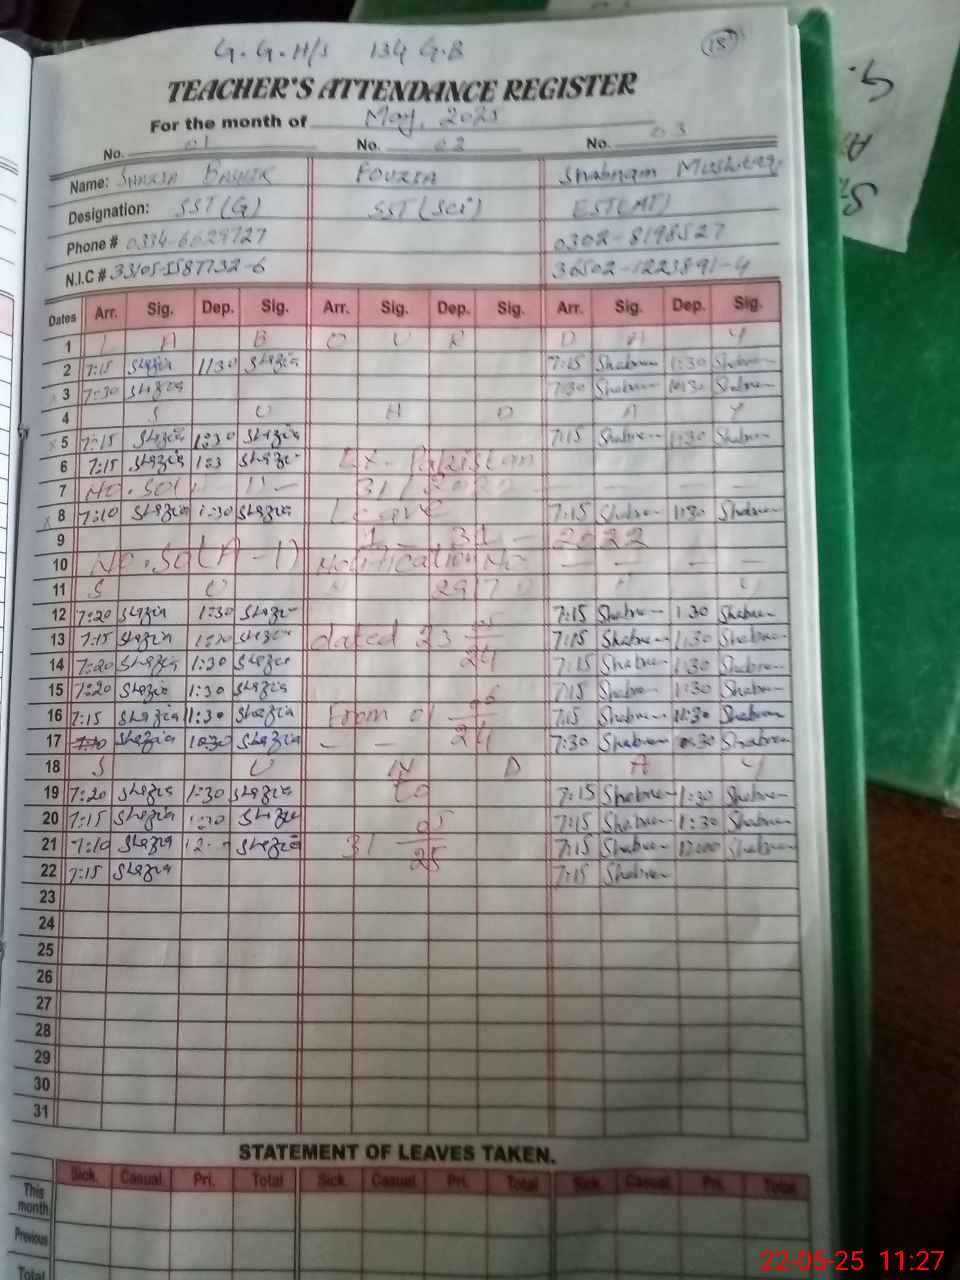 G.G.H/S 134 G.B
15
TEACHER'S ATTENDANCE REGISTER
For the month of May, 2025
No. 01 No. 02 No. 03
Name: Bashir Fouzia Shabnam Mushtaq
Designation: SST(G) SST(Sci) EST(AT)
Phone # 0334-6629727 0302-8198527
N.I.C # 33105-5587732-6 36502-1223891-4
Dates Arr. Sig. Dep. Sig. Arr. Sig. Dep. Sig. Arr. Sig. Dep. Sig.
1 L A B O U R D A Y
2 7:15 Shazia 1:30 Shazia 7:15 Shabnam 1:30 Shabnam
3 7:30 Shazia 7:30 Shabnam Shabnam
4 S U N D A Y
5 7:15 Shazia 1:30 Shazia 7:15 Shabnam 1:30 Shabnam
6 7:15 Shazia 1:3 Shazia Ex-Pakistan
7 No. SO( 
8 7:10 Shazia 1:30 Shazia Leave 7:15 Shabnam 1:30 Shabnam
9 2022
10 No. SO(A-1) Notification No
11 S U N A Y
12 7:20 Shazia 1:30 Shazia 7:15 Shabnam 1:30 Shabnam
13 7:15 Shazia Shazia dated 23 05 24 7:15 Shabnam 1:30 Shabnam
14 7:20 Shazia 1:30 Shazia 7:15 Shabnam 1:30 Shabnam
15 7:20 Shazia 1:30 Shazia 7:15 Shabnam 1:30 Shabnam
16 7:15 Shazia 1:30 Shazia From 01 06 24 7:15 Shabnam 1:30 Shabnam
17 Shazia 10:30 Shazia 7:30 Shabnam Shabnam
18 S U N D A Y
19 7:20 Shazia 1:30 Shazia to 7:15 Shabnam 1:30 Shabnam
20 7:15 Shazia 1:30 Shazia 7:15 Shabnam 1:30 Shabnam
21 7:10 Shazia Shazia 31 05 25 7:15 Shabnam 12:00 Shabnam
22 7:15 Shazia 7:15 Shabnam
23
24
25
26
27
28
29
30
31
STATEMENT OF LEAVES TAKEN.
Sick. Casual Pri. Total Sick. Casual Pri. Total Sick. Casual Pri. Total
This month
Previous
Total
22-05-25 11:27